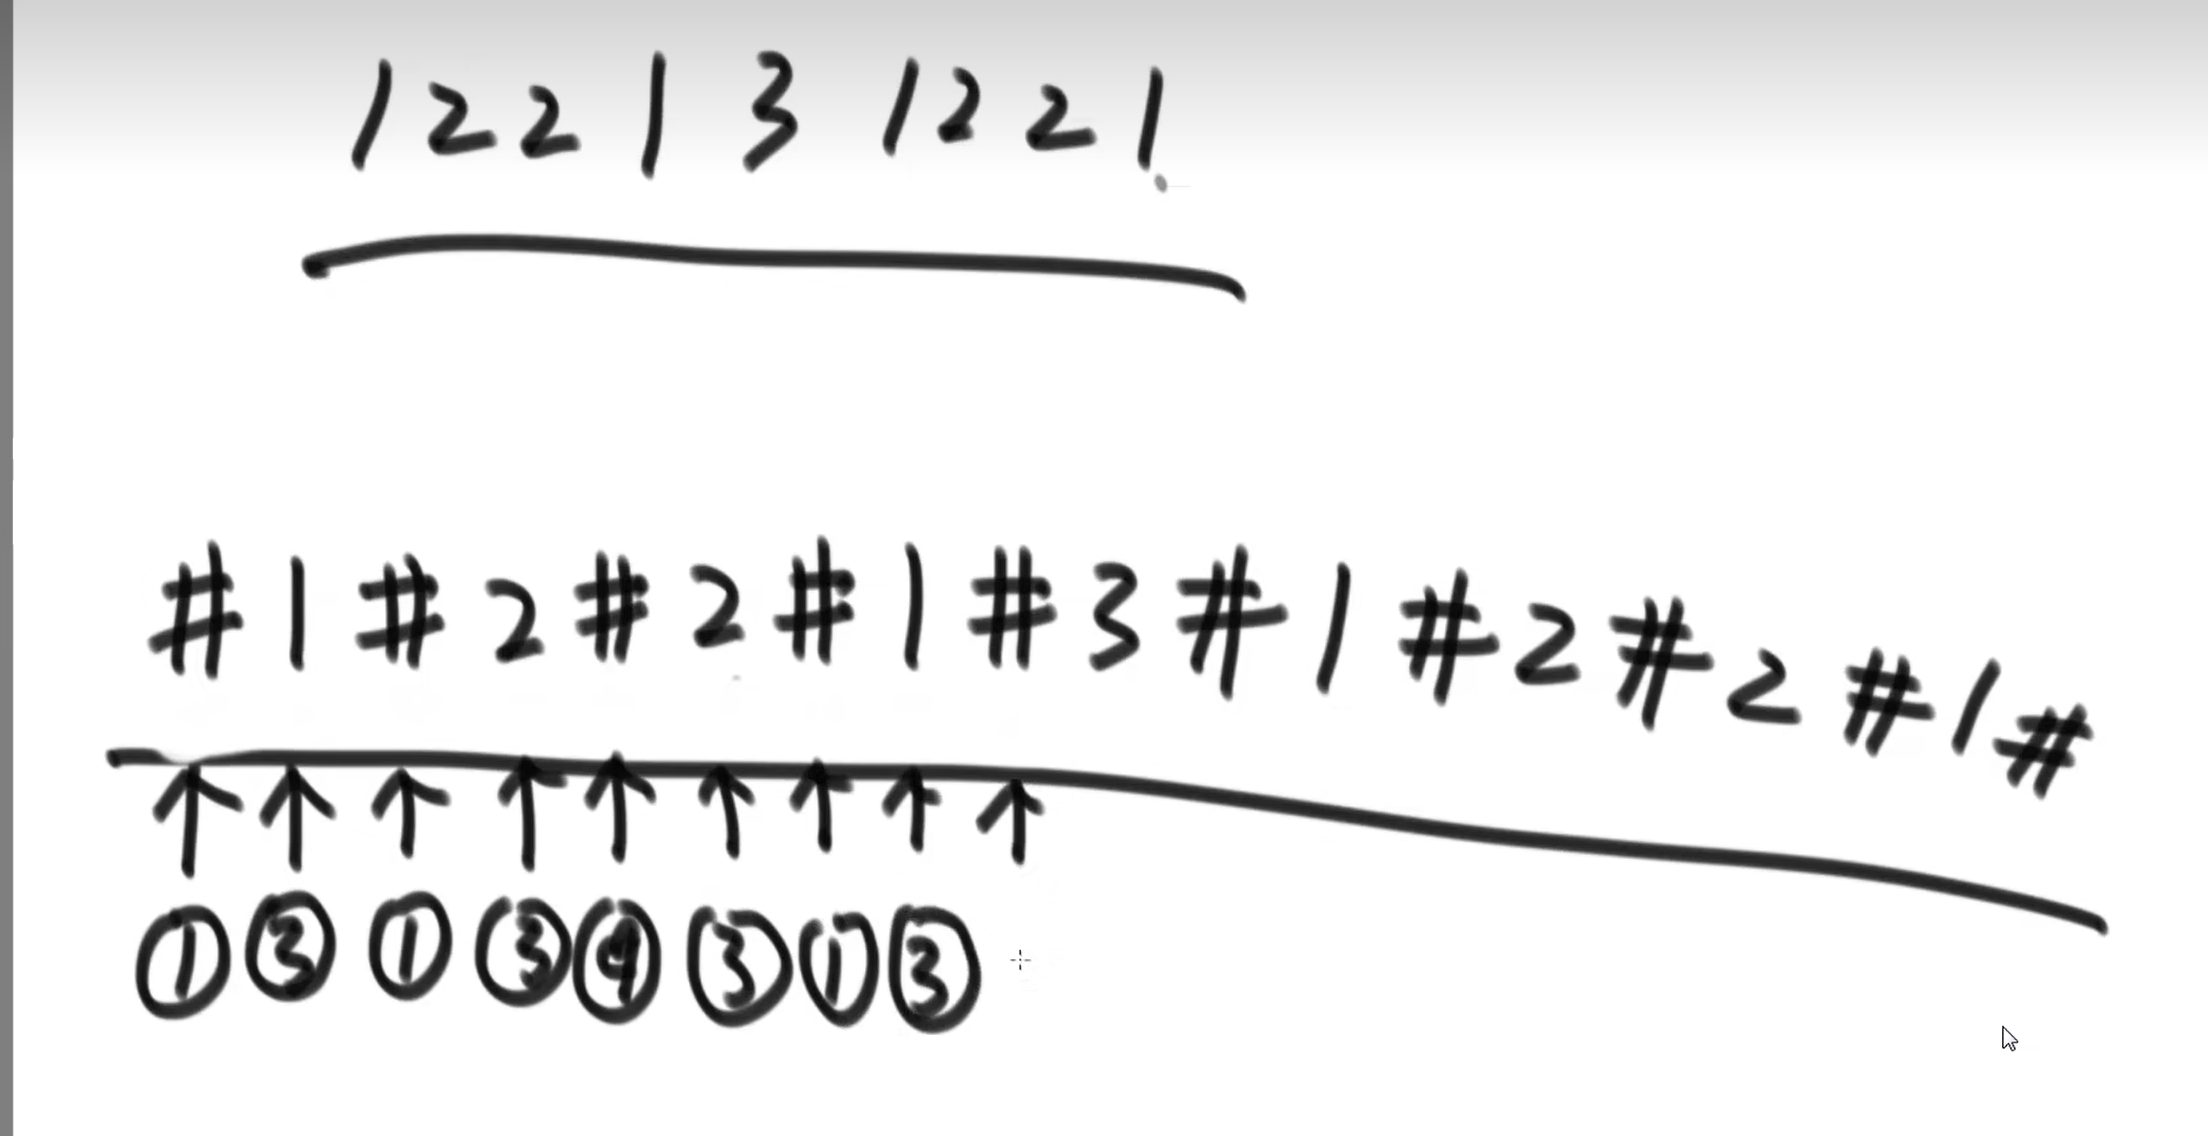 1 2 2 1 3 1 2 2 1
# 1 # 2 # 2 # 1 # 3 # 1 # 2 # 2 # 1 #
↑ ↑ ↑ ↑ ↑ ↑ ↑ ↑ ↑
① ③ ① ③ ④ ③ ① ③